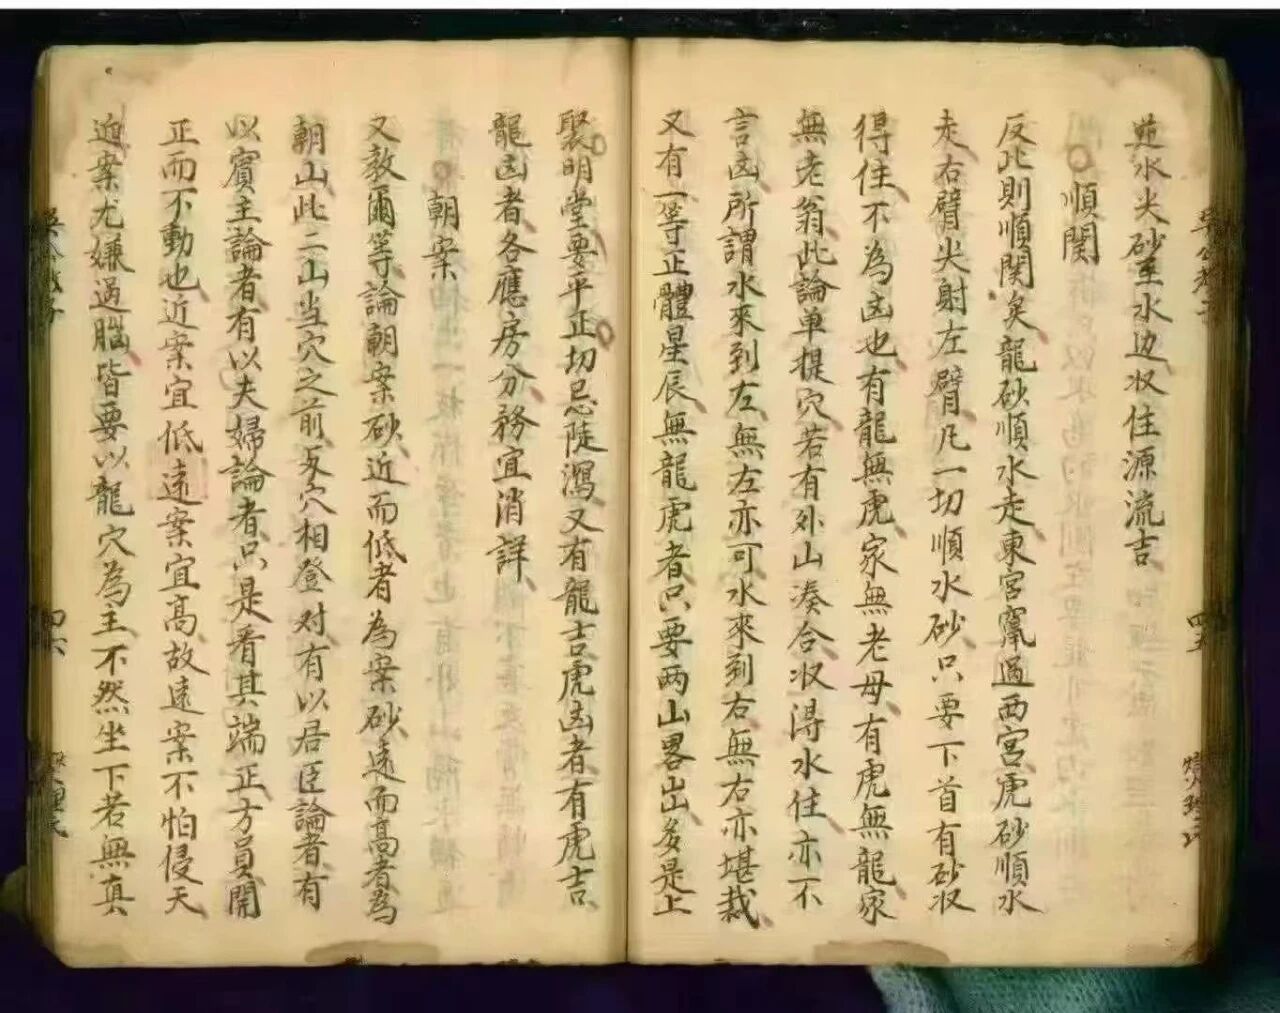 逆水尖砂至水边収住源流吉
順関
反此則順関矣龍砂順水走東宮竄過西宮虎砂順水
走右臂尖射左臂凡一切順水砂只要下首有砂収
得住不為凶也有龍無虎家無老母有虎無龍家
無老翁此論单提穴若有外山湊合収得水住亦不
言凶所謂水來到左無左亦可水來到右無右亦堪裁
又有一等正體星辰無龍虎者只要两山畧出多是上
聚明堂要平正切忌陡瀉又有龍吉虎凶者有虎吉
龍凶者各應房分務宜消詳
朝案
又教爾等論朝案砂近而低者為案砂遠而高者為
朝山此二山当穴之前与穴相登对有以君臣論者有
以賓主論者有以夫婦論者只是看其端正方員開
正而不動也近案宜低遠案宜高故遠案不怕侵天
迫案尤嫌過腦皆要以龍穴為主不然坐下若無真
四五
四六